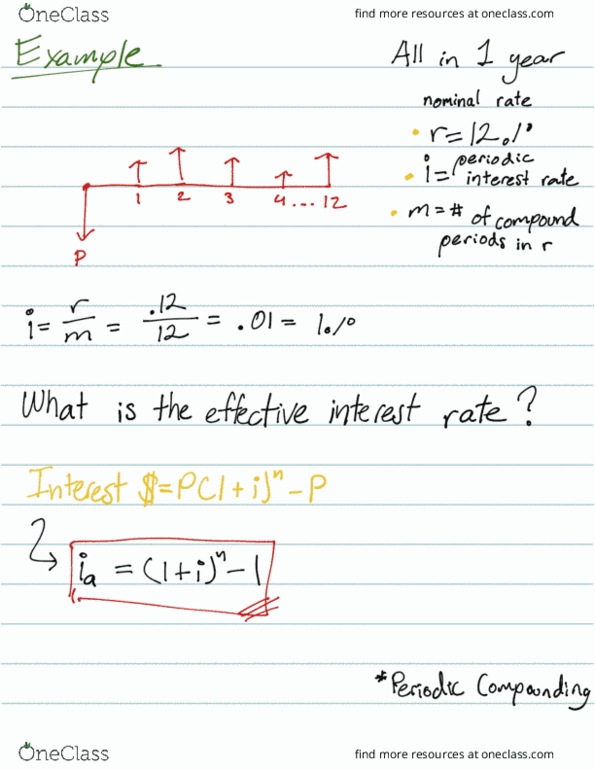 OneClass
find more resources at oneclass.com
Example
All in 1 year
nominal rate
• r = 12%
• i = periodic interest rate
• m = # of compound
periods in r
1 2 3 4...12
P
i = r/m = .12/12 = .01 = 1%
What is the effective interest rate?
Interest $ = P(1+i)^n - P
i_a = (1+i)^n - 1
*Periodic Compounding
OneClass
find more resources at oneclass.com